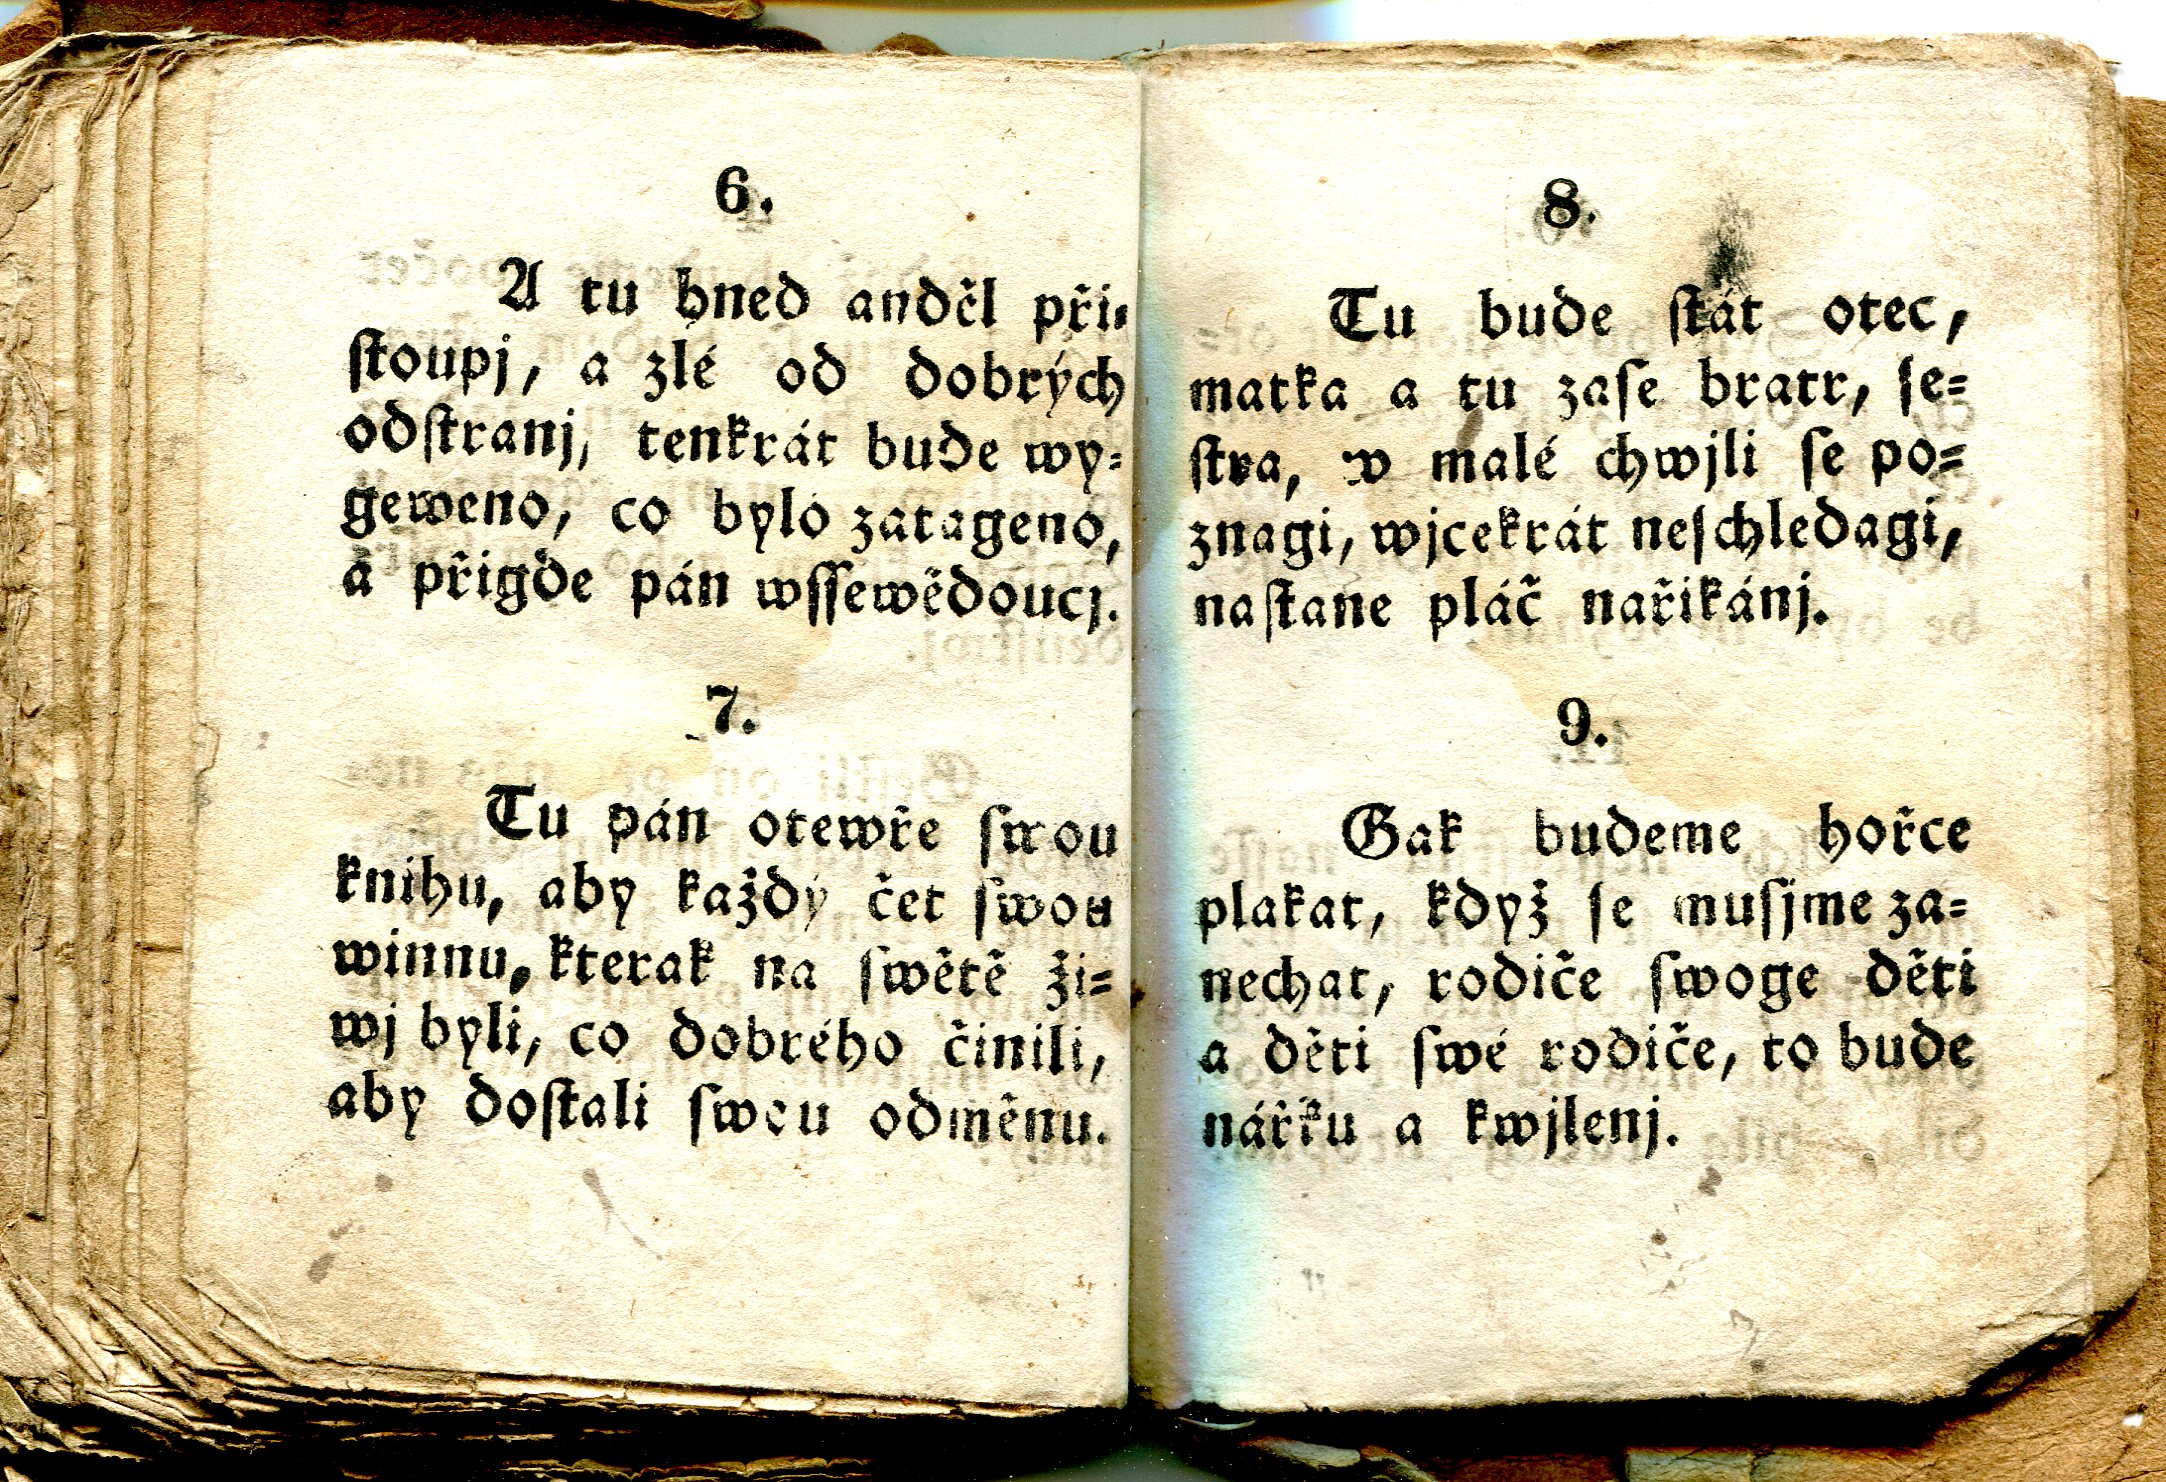 6.
A tu hned anděl při=
ſtoupj, a zlé od dobrých
odſtranj, tenkrát bude wy=
geweno, co bylo zatageno,
a přigde pán wſſewědoucj.
7.
Tu pán otewře ſwou
knihu, aby každý čet ſwou
winnu, kterak na ſwětě ži=
wj byli, co dobrého činili,
aby doſtali ſwou odměnu.
8.
Tu bude ſtát otec,
matka a tu zaſe bratr, ſe=
ſtra, w malé chwjli ſe po=
znagi, wjcekrát neſchledagi,
naſtane pláč nařikánj.
9.
Gak budeme hořce
plakat, když ſe muſjme za=
nechat, rodiče ſwoge děti
a děti ſwé rodiče, to bude
nářku a kwjlenj.